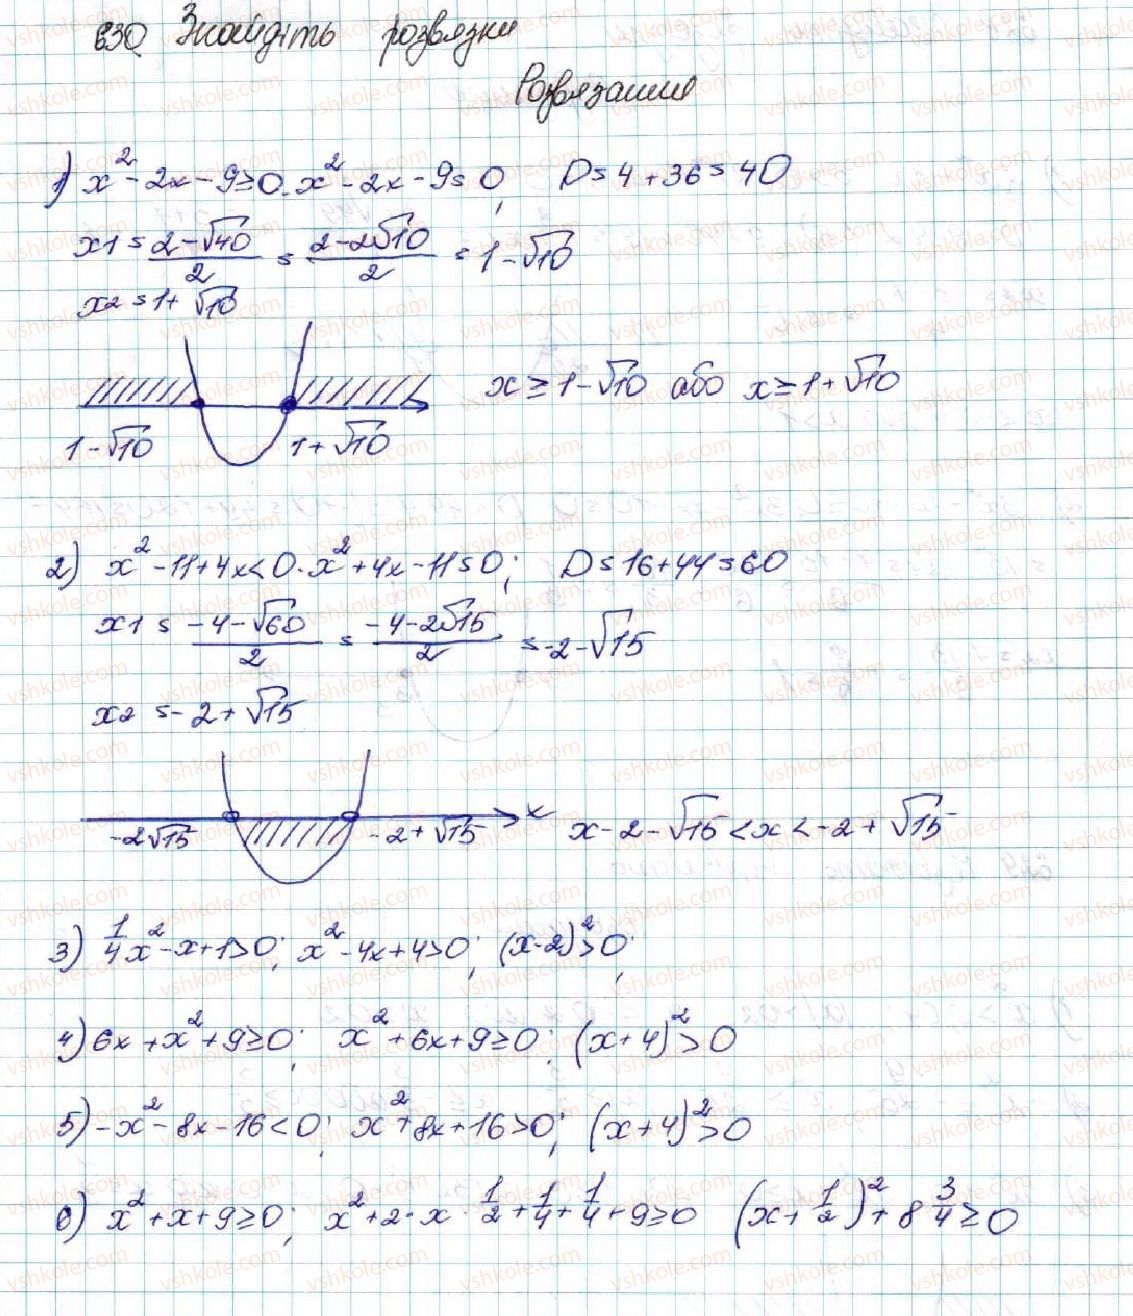 630 Знайдіть розвязки
Розвязання
1) x² - 2x - 9 ≥ 0. x² - 2x - 9 = 0; D = 4 + 36 = 40
x1 = (2 - √40)/2 = (2 - 2√10)/2 = 1 - √10
x2 = 1 + √10
x ≥ 1 - √10 або x ≥ 1 + √10
1 - √10 1 + √10
2) x² - 11 + 4x < 0. x² + 4x - 11 = 0; D = 16 + 44 = 60
x1 = (-4 - √60)/2 = (-4 - 2√15)/2 = -2 - √15
x2 = -2 + √15
x
-2√15 -2 + √15 x - 2 - √15 < x < -2 + √15
3) 1/4 x² - x + 1 > 0; x² - 4x + 4 > 0; (x - 2)² > 0;
4) 6x + x² + 9 ≥ 0; x² + 6x + 9 ≥ 0; (x + 4)² > 0
5) -x² - 8x - 16 < 0; x² + 8x + 16 > 0; (x + 4)² > 0
6) x² + x + 9 ≥ 0; x² + 2 · x · 1/2 + 1/4 + 1/4 + 9 ≥ 0 (x + 1/2)² + 8 3/4 ≥ 0
vshkole.com